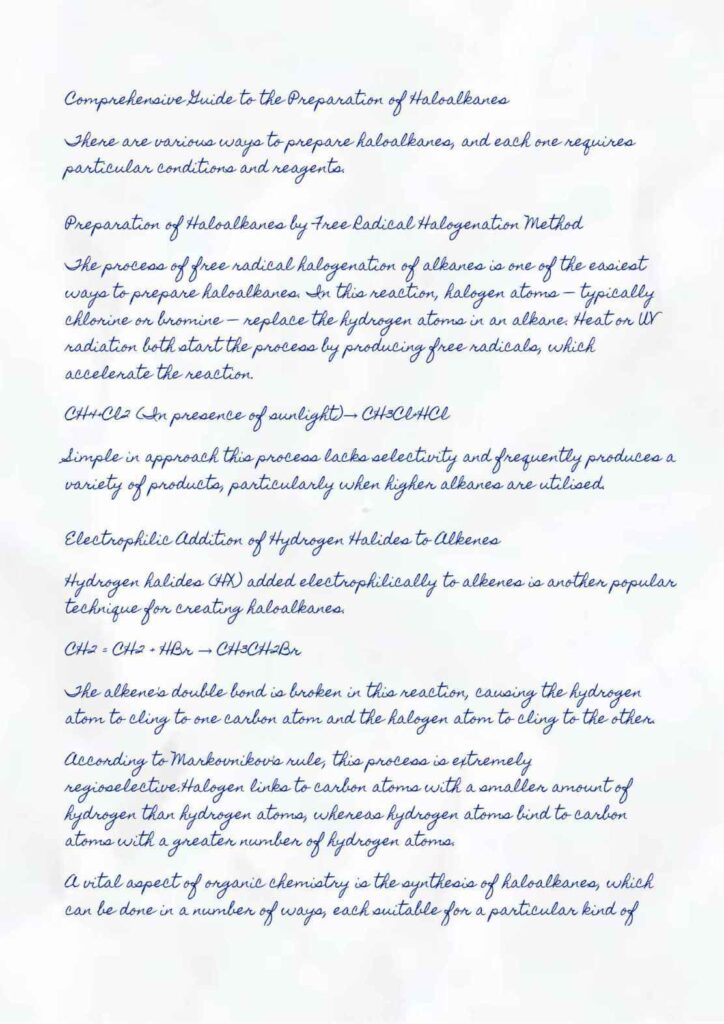 Comprehensive Guide to the Preparation of Haloalkanes
There are various ways to prepare haloalkanes, and each one requires
particular conditions and reagents.
Preparation of Haloalkanes by Free Radical Halogenation Method
The process of free radical halogenation of alkanes is one of the easiest
ways to prepare haloalkanes. In this reaction, halogen atoms — typically
chlorine or bromine — replace the hydrogen atoms in an alkane. Heat or UV
radiation both start the process by producing free radicals, which
accelerate the reaction.
CH4+Cl2 (In presence of sunlight)→ CH3Cl+HCl
Simple in approach this process lacks selectivity and frequently produces a
variety of products, particularly when higher alkanes are utilised.
Electrophilic Addition of Hydrogen Halides to Alkenes
Hydrogen halides (HX) added electrophilically to alkenes is another popular
technique for creating haloalkanes.
CH2 = CH2 + HBr → CH3CH2Br
The alkene's double bond is broken in this reaction, causing the hydrogen
atom to cling to one carbon atom and the halogen atom to cling to the other.
According to Markovnikov's rule, this process is extremely
regioselective.Halogen links to carbon atoms with a smaller amount of
hydrogen than hydrogen atoms, whereas hydrogen atoms bind to carbon
atoms with a greater number of hydrogen atoms.
A vital aspect of organic chemistry is the synthesis of haloalkanes, which
can be done in a number of ways, each suitable for a particular kind of